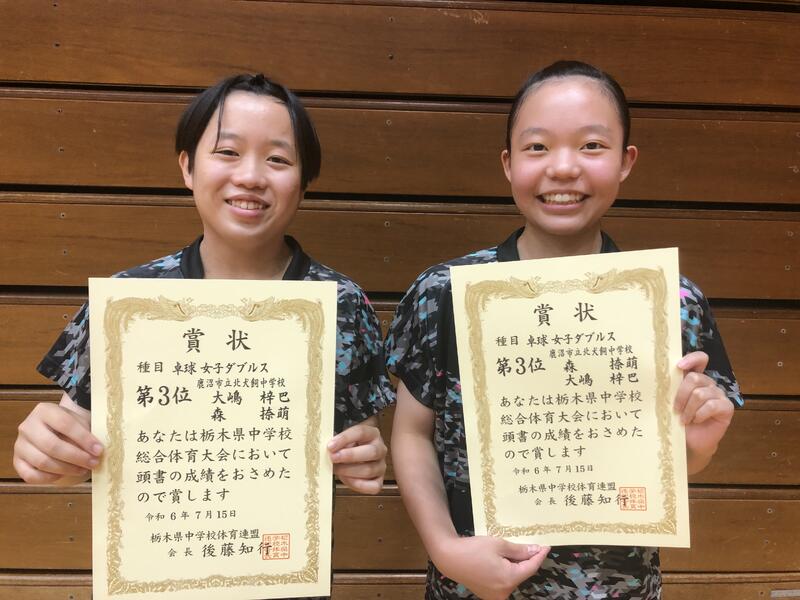 賞状
種目 卓球 女子ダブルス
鹿沼市立北犬飼中学校
第3位 大嶋 梓巴
森 捺萌
あなたは栃木県中学校
総合体育大会において
頭書の成績をおさめた
ので賞します
令和6年7月15日
栃木県中学校体育連盟
会長 後藤知行
賞状
種目 卓球 女子ダブルス
鹿沼市立北犬飼中学校
第3位 森 捺萌
大嶋 梓巴
あなたは栃木県中学校
総合体育大会において
頭書の成績をおさめた
ので賞します
令和6年7月15日
栃木県中学校体育連盟
会長 後藤知行